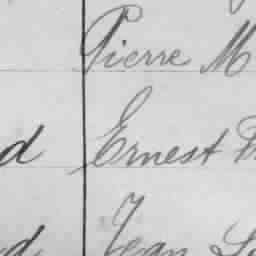 Pierre M
d Ernest
d Jean